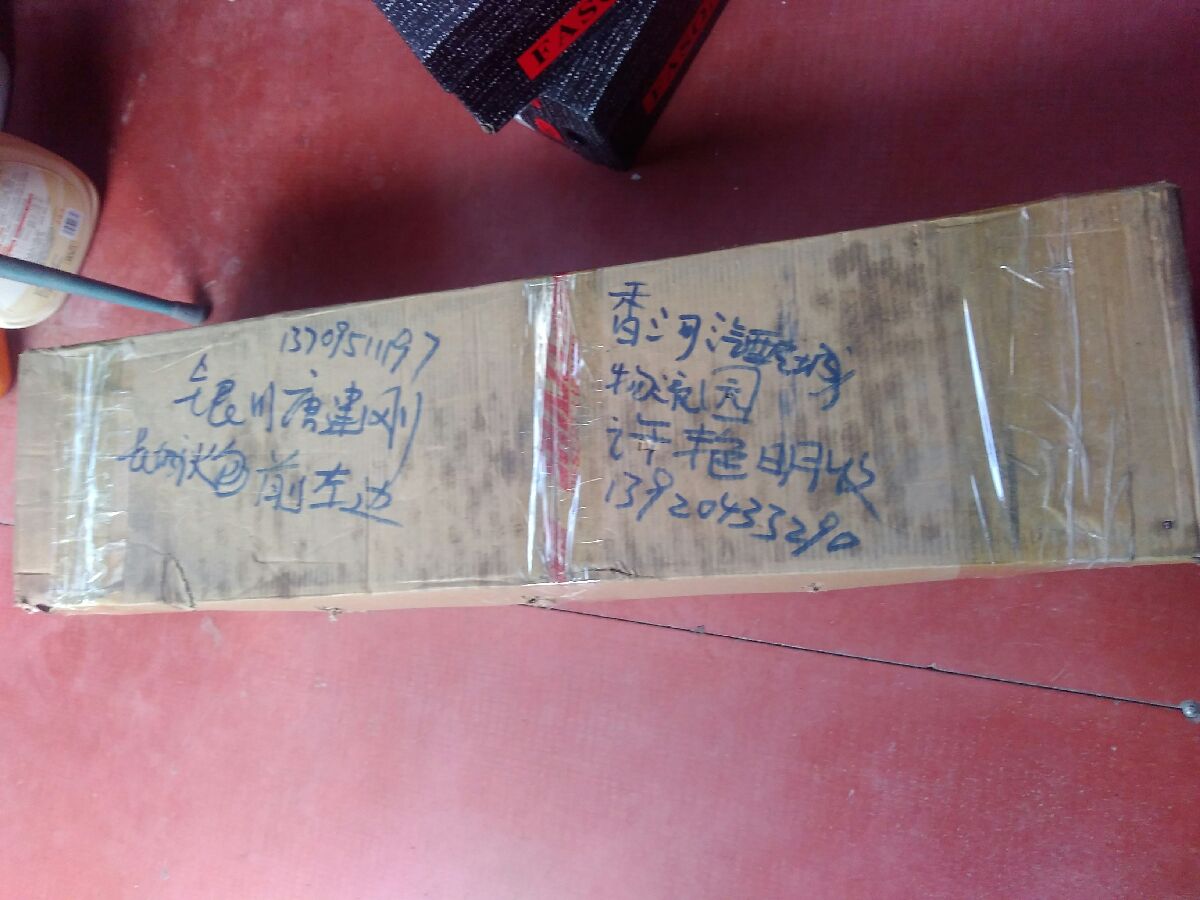 FASO
FASO
1370951197
银川唐建刚
长城炮前左边
香河汽配城
物流园
许艳明收
13920433290